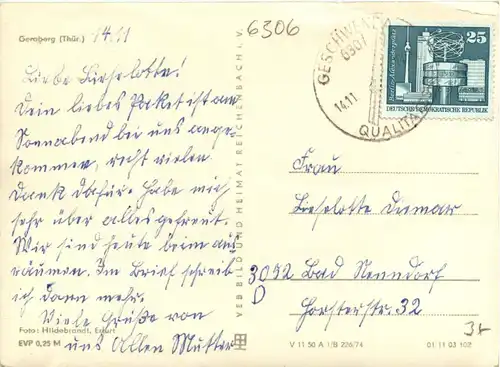 Gernberg (Thür.)
14.11
6306
Liebe Lieselotte!
Dein liebes Paket ist am
Sonnabend bei uns ange-
kommen, recht vielen
Dank dafür. Habe mich
sehr über alles gefreut.
Wir sind heute beim aus
räumen. Im Brief schreib
ich dann mehr.
Viele Grüße von
uns Allen Mutter
Foto: Hildebrandt, Erfurt
EVP 0,25 M
VEB BILD UND HEIMAT REICHENBACH I. V.
6307
14.11
QUALITÄ
25
Berlin, Alexanderplatz
DEUTSCHE DEMOKRATISCHE REPUBLIK
Frau
Lieselotte
3052 Bad Nenndorf
D
Horsterstr. 32
V 11 50 A 1/B 226/74
01 11 03 102